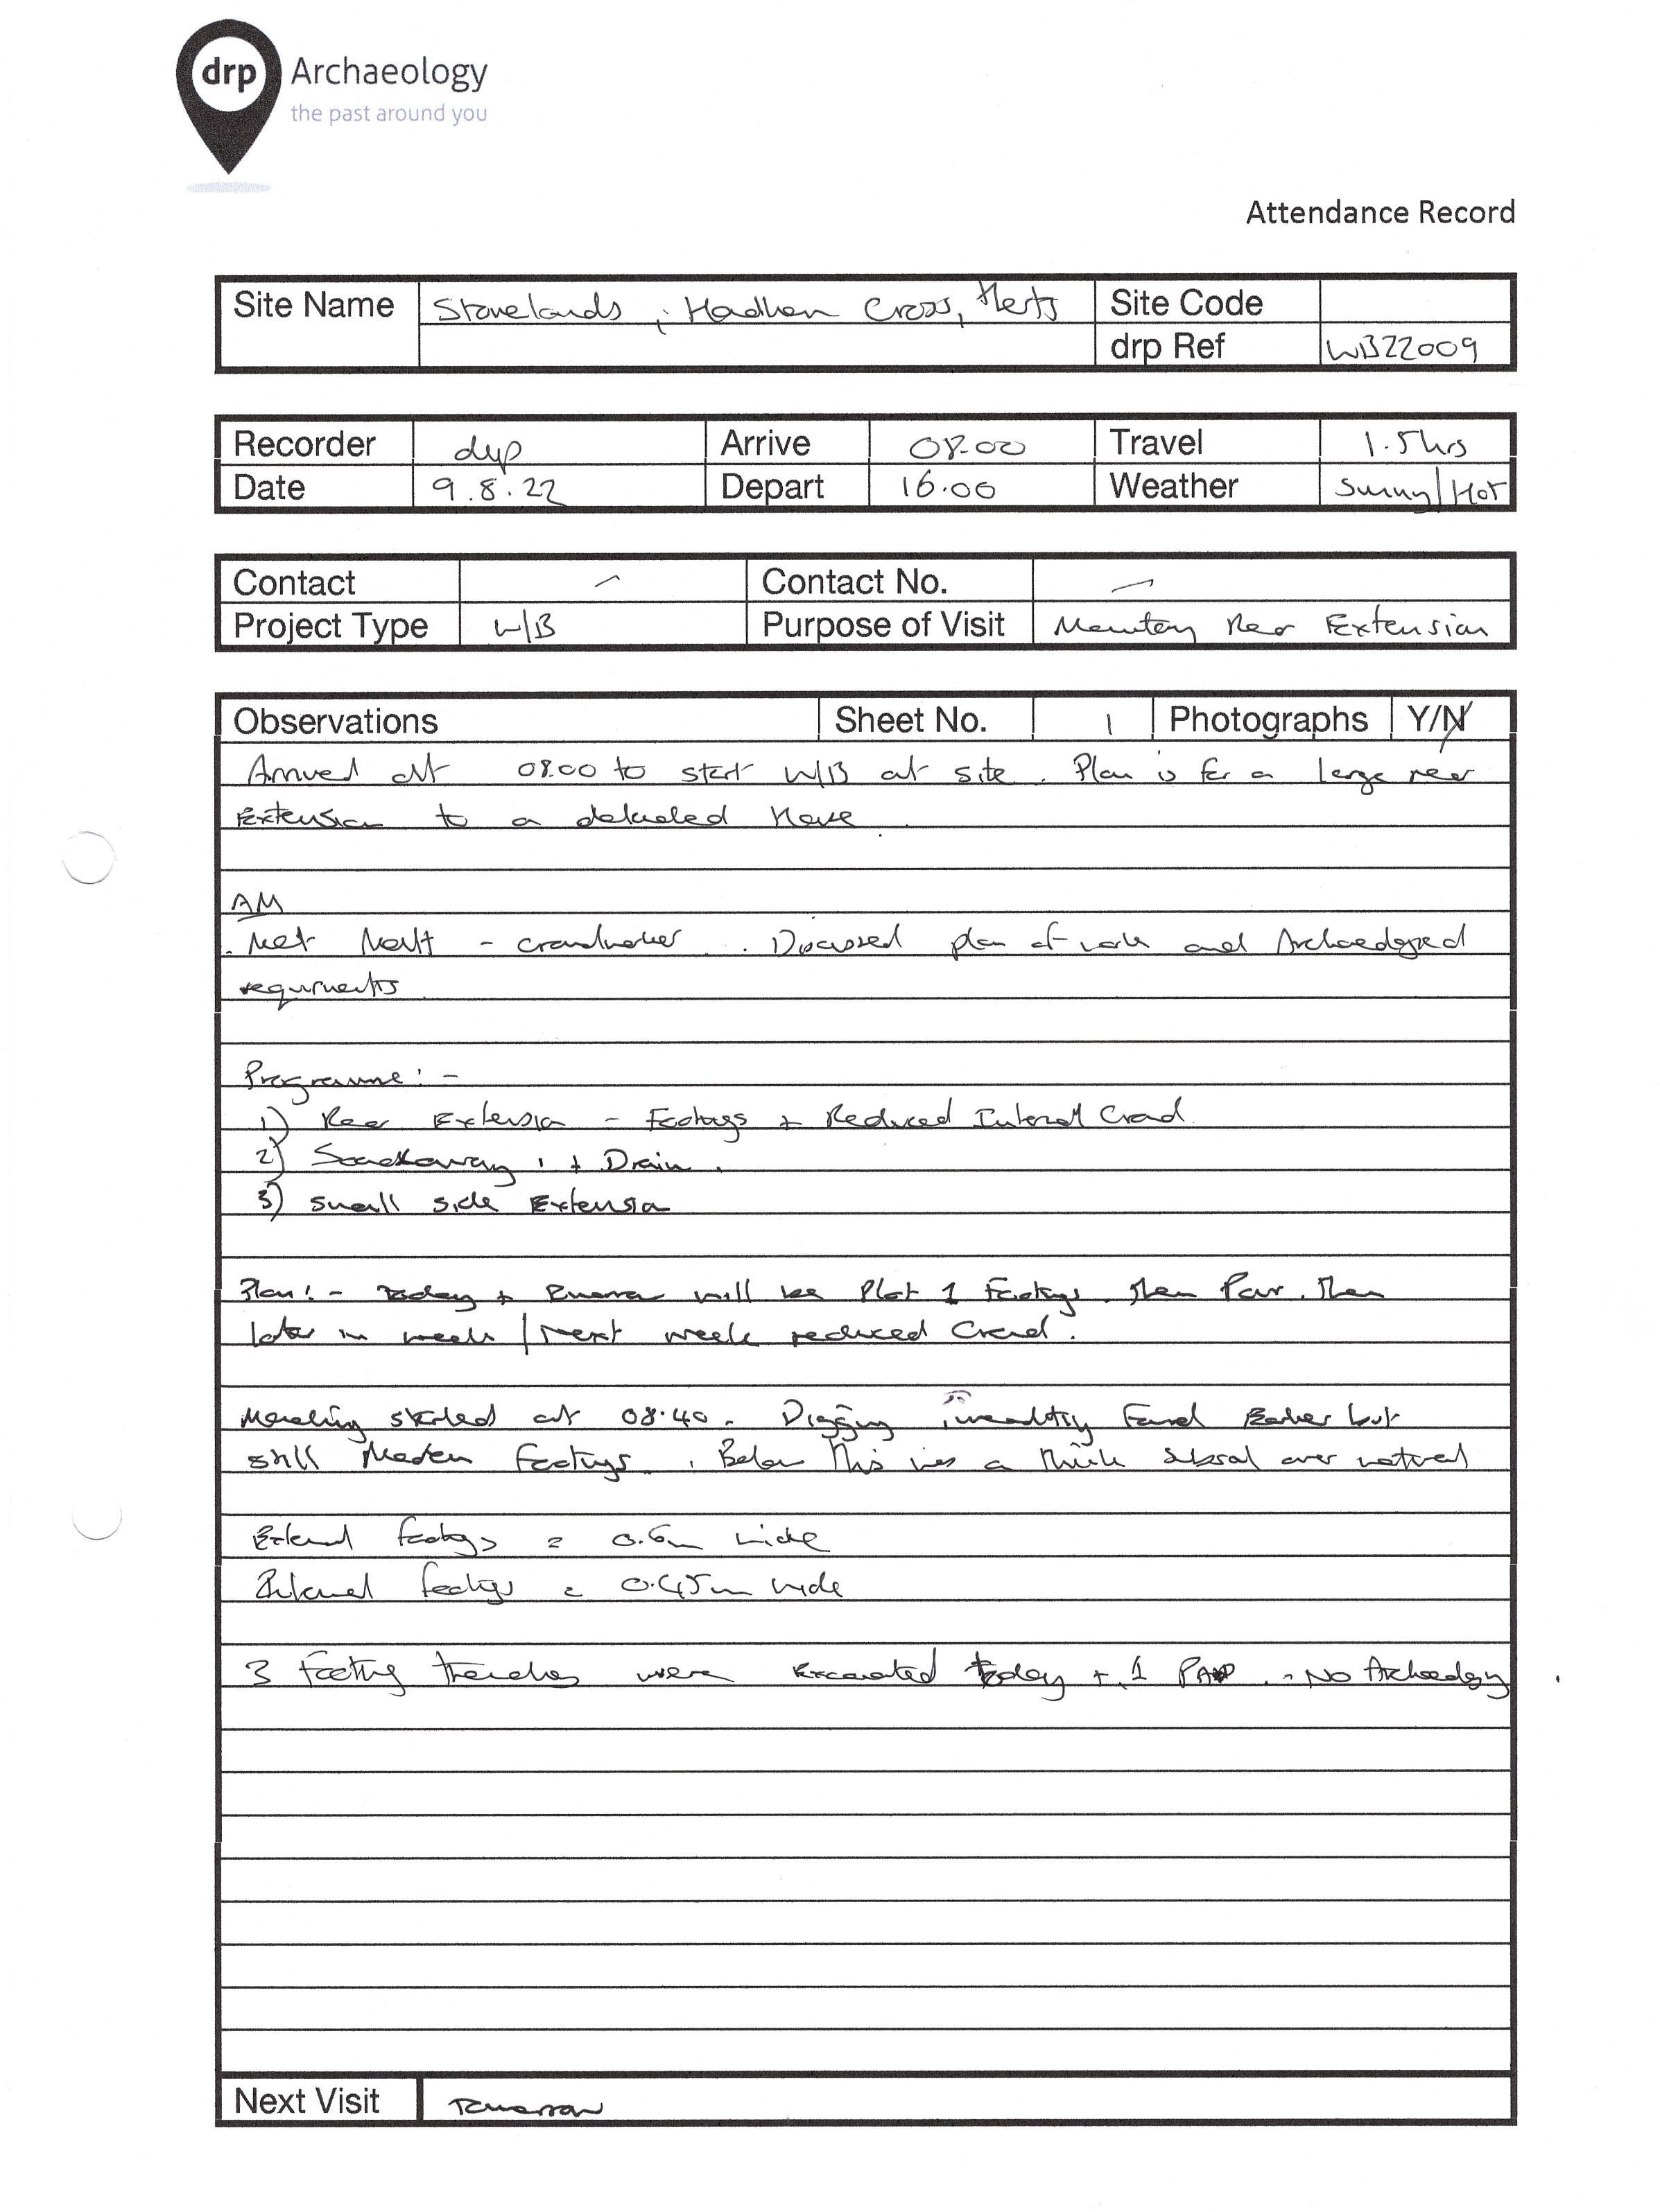 drp Archaeology
the past around you
Attendance Record
Site Name Stonelands, Hadham Cross, Herts Site Code
drp Ref WB22009
Recorder drp Arrive 08.00 Travel 1.5hrs
Date 9.8.22 Depart 16.00 Weather Sunny/Hot
Contact – Contact No. –
Project Type W/B Purpose of Visit Monitor Rear Extension
Observations Sheet No. 1 Photographs Y/N
Arrived at 08.00 to start W/B at site. Plan is for a large rear
Extension to a detached House.
AM
Met Matt - Groundworker. Discussed plan of work and Archaeological
requirments
Programme:-
1) Rear Extension - Footings + Reduced Internal Ground
2) Soakaway + Drain.
3) Small side Extension
Plan:- Today + Tomorrow will be Plot 1 Footings. Then Pour. Then
later in week / Next week reduced Ground.
Machining started at 08.40. Digging immediately Found Earlier but
still Modern Footings. Below This was a Thick Subsoil over natural
External footings = 0.6m wide
Internal footings = 0.45m wide
3 Footing trenches were Excavated today + 1 - No Archaeology.
Next Visit Tomorrow